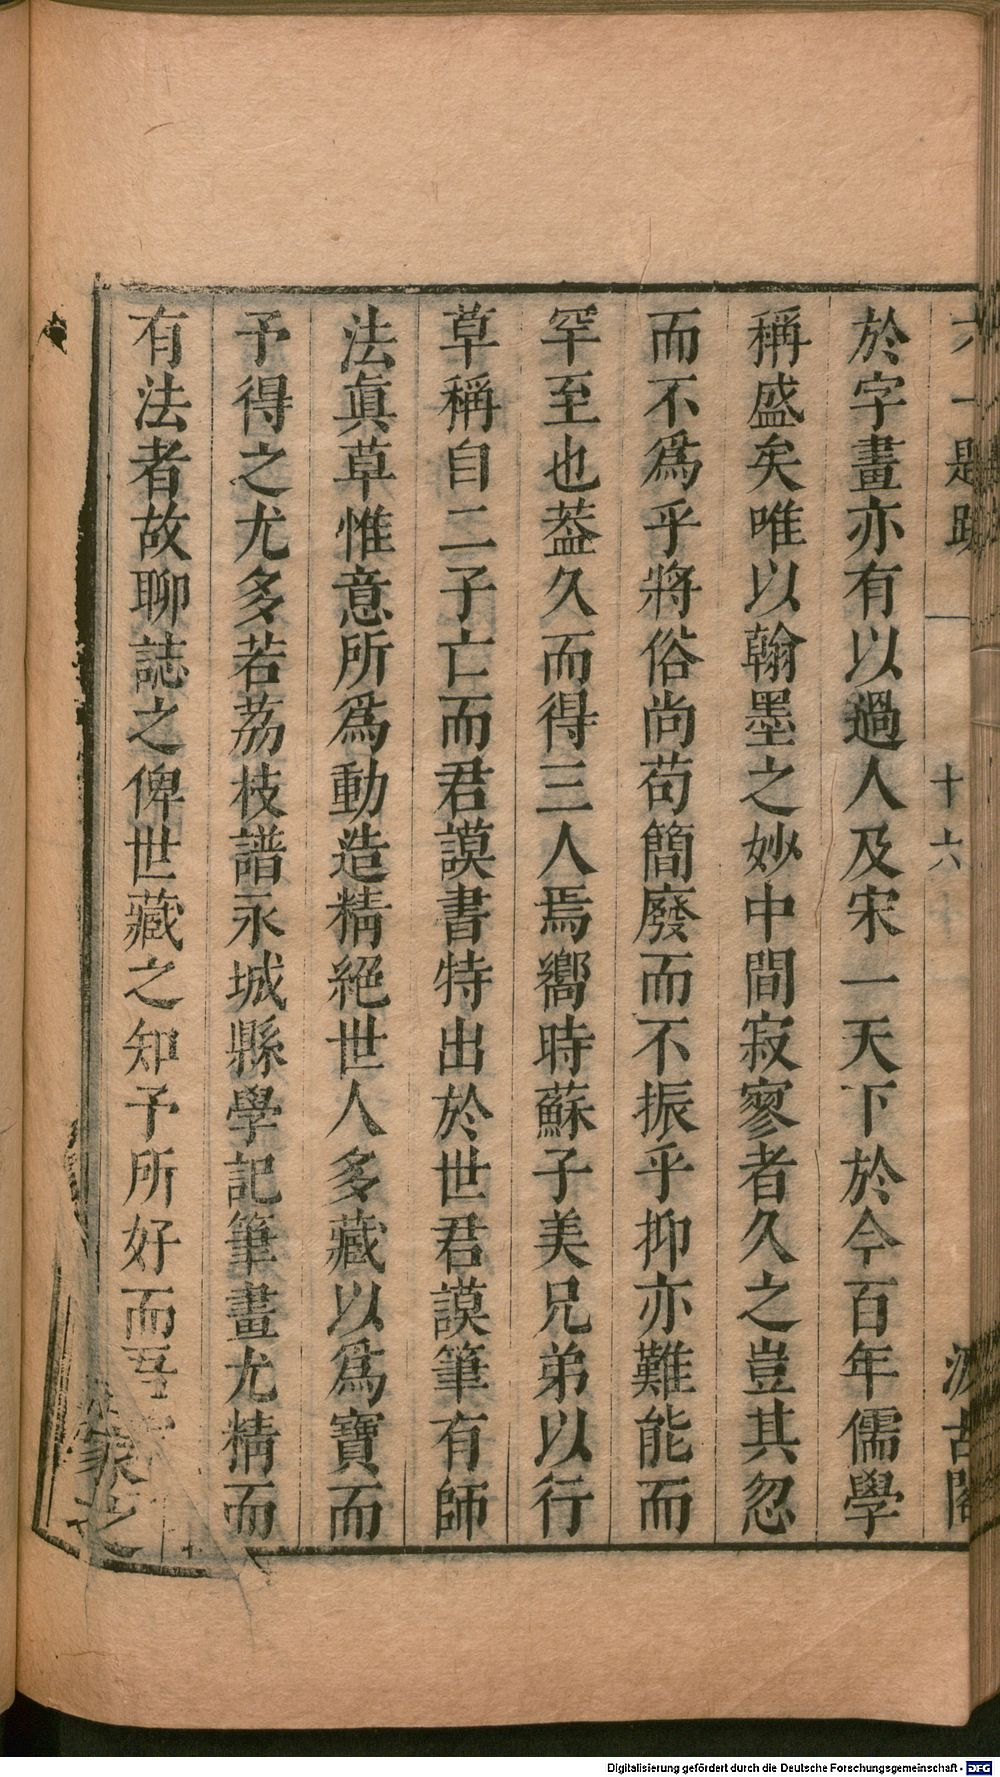 六一題跋 十六 汲古閣
於字畫亦有以過人及宋一天下於今百年儒學
稱盛矣唯以翰墨之妙中間寂寥者久之豈其忽
而不爲乎將俗尚苟簡廢而不振乎抑亦難能而
罕至也葢久而得三人焉嚮時蘇子美兄弟以行
草稱自二子亡而君謨書特出於世君謨筆有師
法眞草惟意所爲動造精絕世人多藏以爲寶而
予得之尤多若荔枝譜永城縣學記筆畫尤精而
有法者故聊誌之俾世藏之知予所好而吾
家之
Digitalisierung gefördert durch die Deutsche Forschungsgemeinschaft - DFG